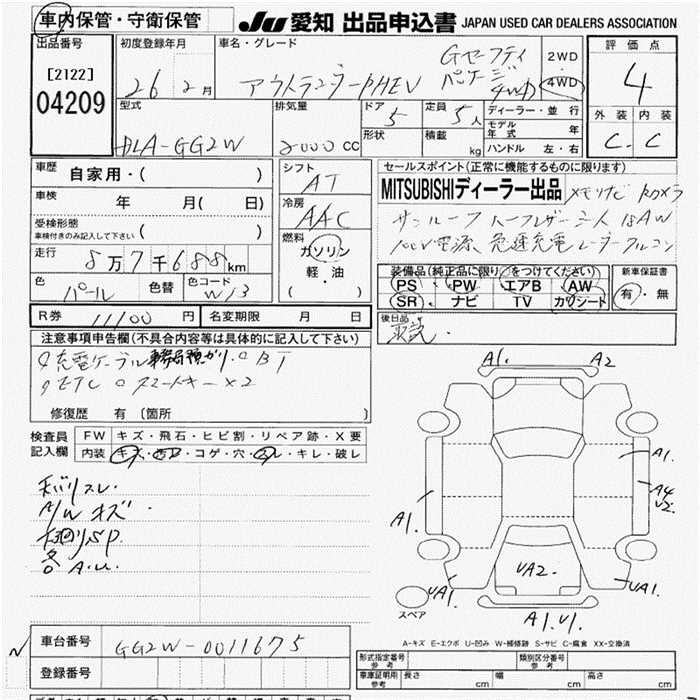 車内保管・守衛保管
JU 愛知 出品申込書 JAPAN USED CAR DEALERS ASSOCIATION
出品番号
[2122]
04209
初度登録年月
26 2月
車名・グレード
アウトランダーPHEV
Gセーフティ
パッケージ
4WD
2WD
4WD
評価点
4
外装 内装
C - C
型式
DLA-GG2W
排気量
2000 cc
ドア
5
定員
5人
形状
積載
kg
ディーラー・並行
モデル年式 年
ハンドル 左・右
車歴 自家用・( )
車検 年 月( 日)
受検形態
車検付きのみ記入して下さい ( )
走行 8万7千688km
色 パール
色替
色コード W13
シフト
AT
冷房
AAC
燃料
ガソリン
軽・油
( )
R券 11100円
名変期限 月 日
セールスポイント(正常に機能するものに限ります)
MITSUBISHIディーラー出品 メモリナビ Bカメラ
サンルーフ 18AW
100V電源 急速充電 レーダークルコン
装備品(純正品に限り○をつけてください)
PS・PW エアB AW
SR・ナビ TV カワシート
新車保証書
有・無
後日品
取説.
注意事項申告欄(不具合内容等は具体的に記入して下さい)
充電ケーブル事務局預かり。BT
ETC スマートキー×2
修復歴 有 〔箇所 〕
検査員
記入欄
FW キズ・飛石・ヒビ割・リペア跡・X要
内装 キズ・汚レ・コゲ・穴・スレ・キレ・破レ
A/W キズ.
各 A.U.
A1. A2
A1.
A4
U2.
A1.
UA1.
UA2.
UA1.
A1.U1.
スペア
A-キズ E-エクボ U-凹み W-補修跡 S-サビ C-腐食 XX-交換済
車台番号 GG2W-0011675
登録番号
形式指定番号
参考
類別区分番号
参考
車庫証明用
参考
長さ cm 幅 cm 高さ cm